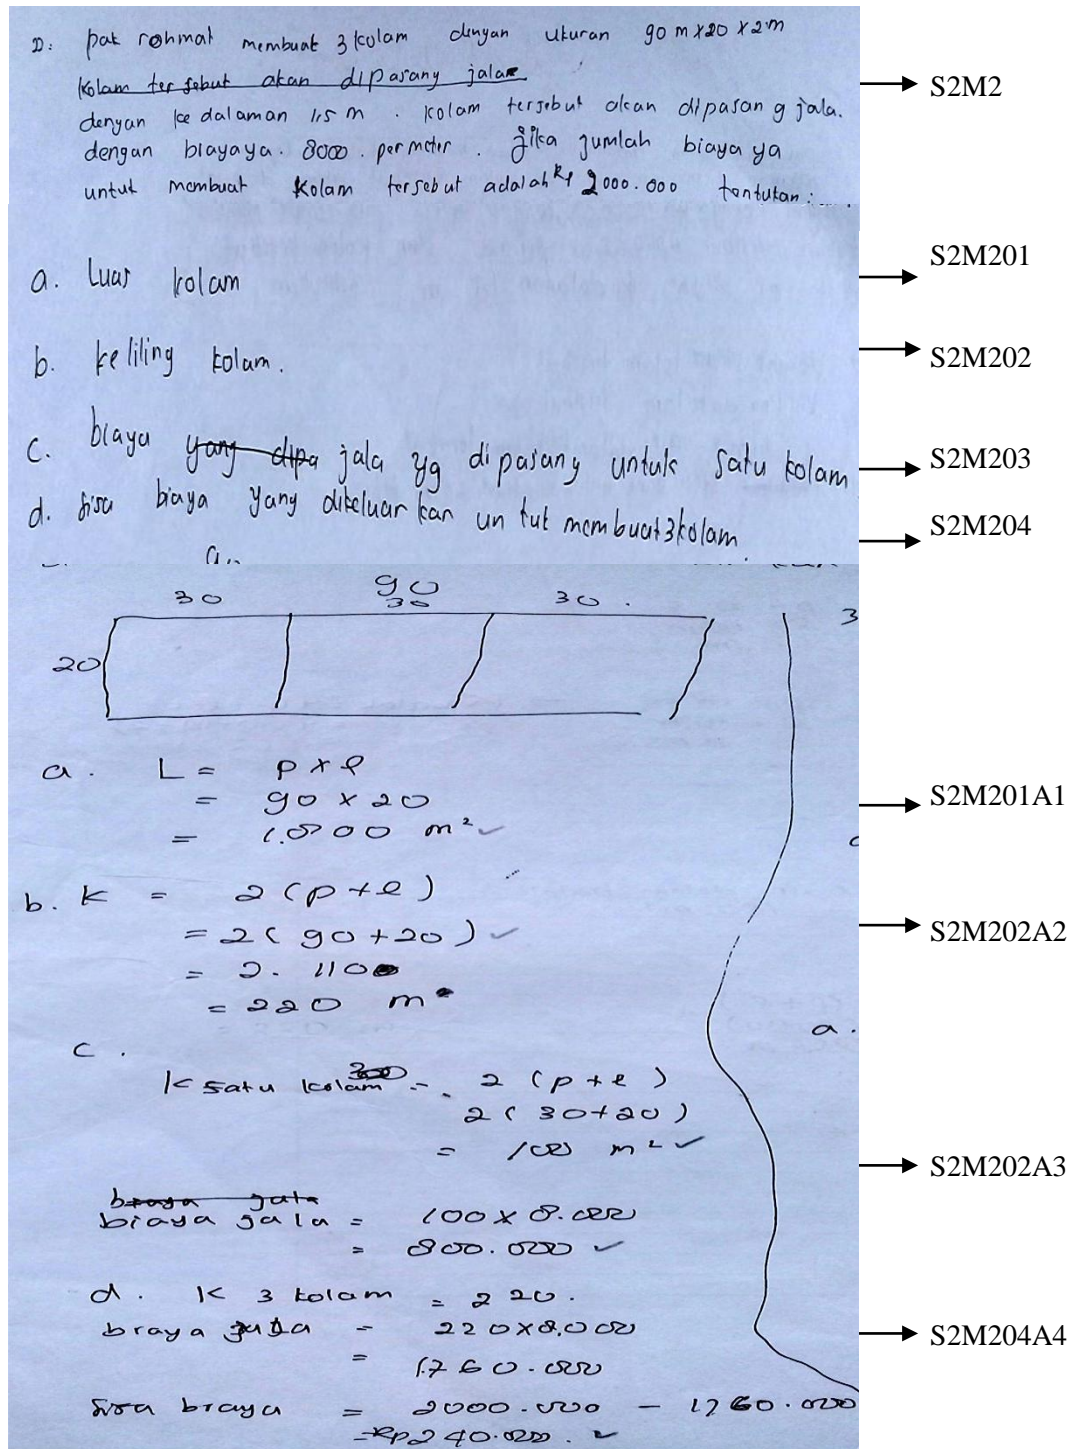 D. pak rohmat membuat 3 kolam dengan ukuran 90 m x 20 x 2 m
kolam tersebut akan dipasany jala S2M2
denyan ke dalaman 1,5 m. kolam tersebut akan dipasang jala.
dengan biayaya. 8000. per meter. jika jumlah biaya ya
untuk membuat kolam tersebut adalah Rp 2000.000 tentukan:....
a. Luas kolam S2M201
b. keliling kolam. S2M202
c. biaya yang dipa jala yg dipasany untuk satu kolam S2M203
d. sisa biaya yang dikeluarkan untuk membuat 3 kolam. S2M204
a.
90
30 30 30.
20
3
a. L = p x l
= 90 x 20 S2M201A1
= 1.800 m²
b. K = 2 (p + l)
= 2 ( 90 + 20 ) S2M202A2
= 2. 110
= 220 m
a.
c.
K satu kolam = 2 (p + l)
2 ( 30 + 20 )
= 100 m²
S2M202A3
biaya jala
biaya jala = 100 x 8.000
= 800.000
d. K 3 kolam = 220.
biaya jala = 220 x 8.000 S2M204A4
= 1.760.000
sisa biaya = 2000.000 - 1760.000
= Rp 240.000.